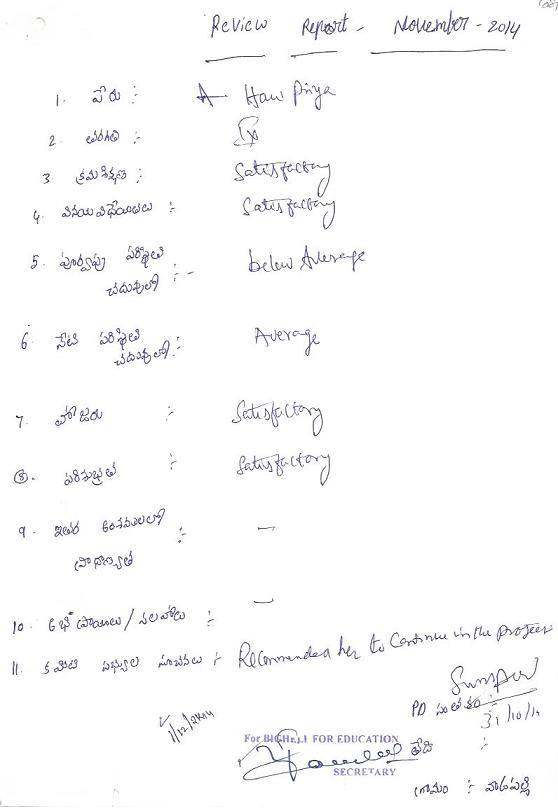 Review Report - November - 2014
1. పేరు :- A. Hari Priya
2. తరగతి :- IX
3. క్రమశిక్షణ :- Satisfactory
4. వినయ విధేయతలు :- Satisfactory
5. పూర్వపు పరిస్థితి చదువులో :- below Average
6 నేటి పరిస్థితి చదువులో :- Average
7. హాజరు :- Satisfactory
8. పరిశుభ్రత :- Satisfactory
9. ఇతర అంశములలో :- —
ప్రావీణ్యత
10. అభిప్రాయలు / సలహాలు :- —
11. కమిటి సభ్యుల సూచనలు :- Recommended her to Continue in the project
PD సంతకం :
31/10/14
1/12/2014
For BIGHELP FOR EDUCATION
తేది :
SECRETARY
గ్రామం : వాడపల్లి